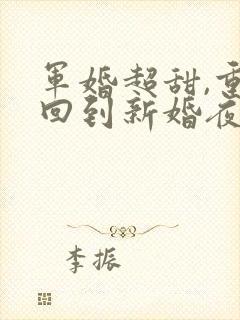 军婚超甜,重
回到新婚夜
李振